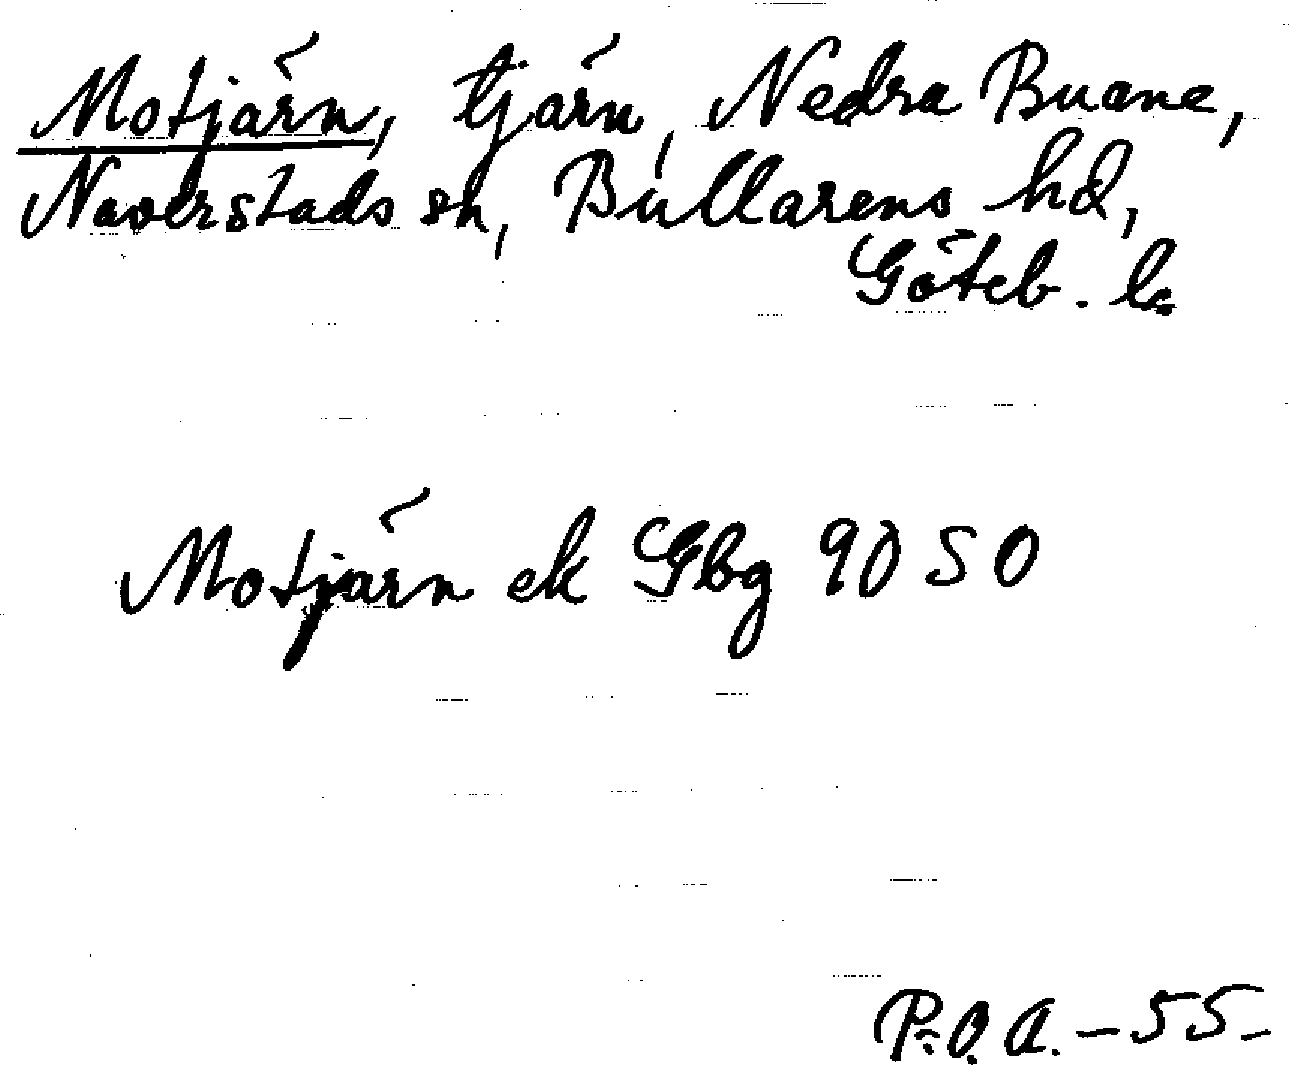 Motjärn, tjärn, Nedra Buane,
Naverstads sn, Bullarens hd,
Göteb. l.
Motjärn ek Gbg 90 SO
P.O.A. - 55 -